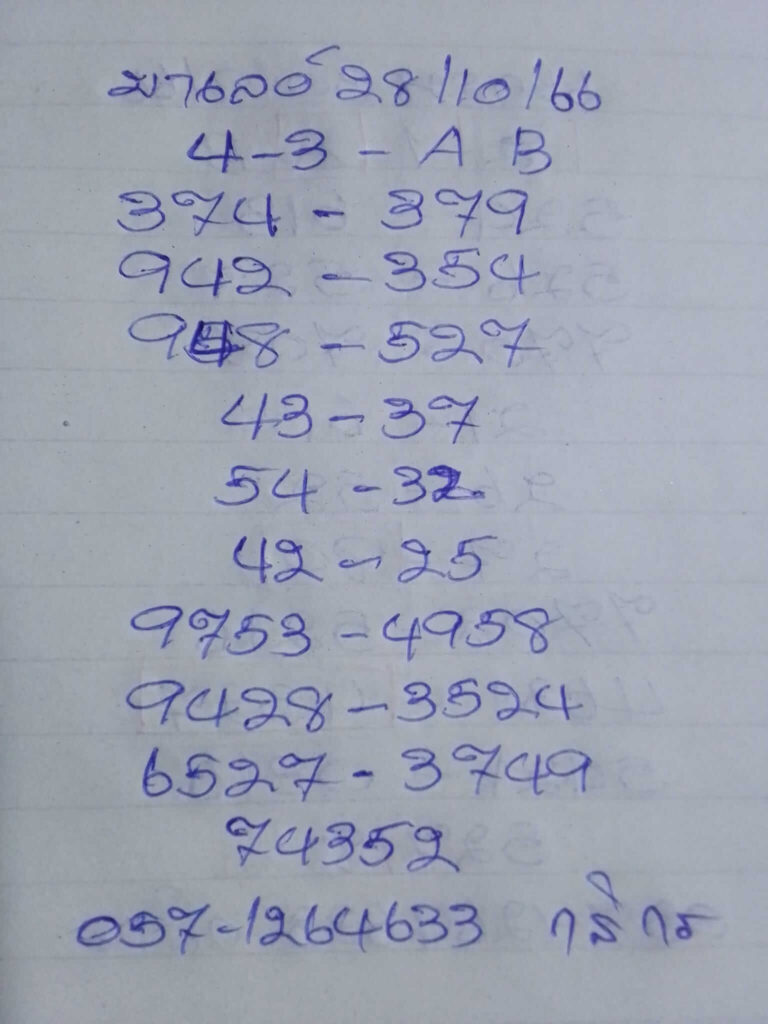 มาเลย์ 28/10/66
4-3-A B
374-379
942-354
948-527
43-37
54-32
42-25
9753-4958
9428-3524
6527-3749
74352
057-1264633